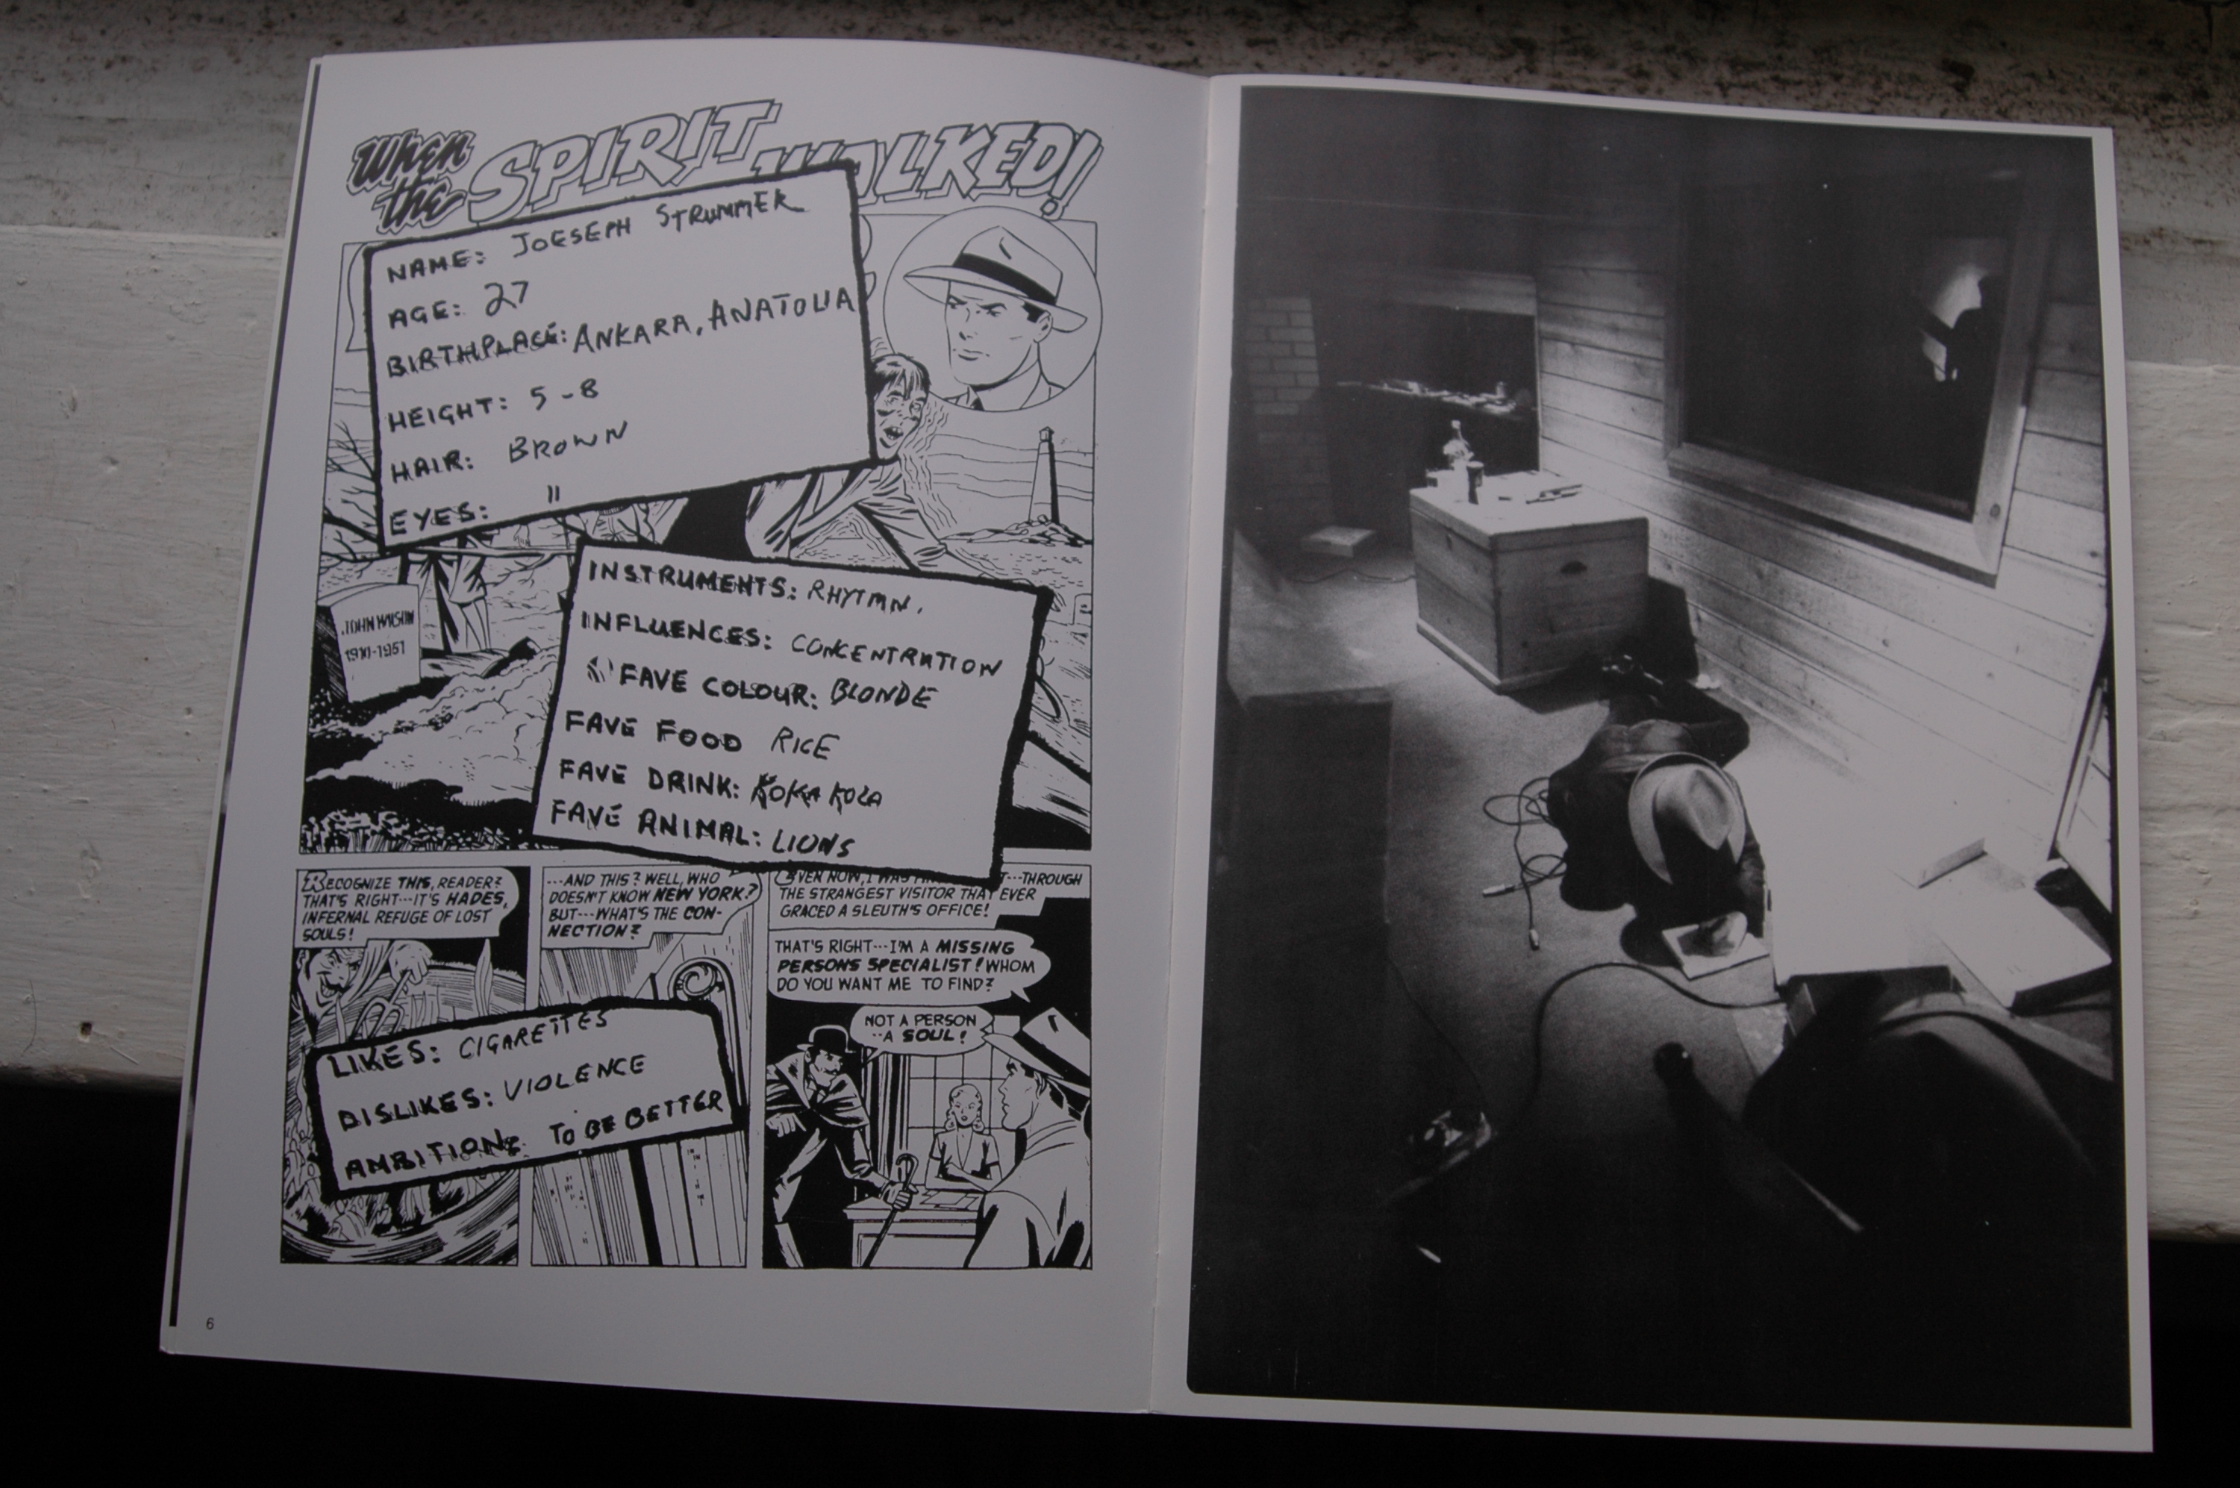 When the SPIRIT WALKED!
NAME: JOESEPH STRUMMER
AGE: 27
BIRTHPLACE: ANKARA, ANATOLIA
HEIGHT: 5-8
HAIR: BROWN
EYES: "
JOHN WILSON
1901-1951
INSTRUMENTS: RHYTMN.
INFLUENCES: CONCENTRATION
FAVE COLOUR: BLONDE
FAVE FOOD RICE
FAVE DRINK: KOKA KOLA
FAVE ANIMAL: LIONS
RECOGNIZE THIS, READER?
THAT'S RIGHT---IT'S HADES,
INFERNAL REFUGE OF LOST
SOULS!
...AND THIS? WELL, WHO
DOESN'T KNOW NEW YORK?
BUT---WHAT'S THE CON-
NECTION?
EVEN NOW, I WAS ---THROUGH
THE STRANGEST VISITOR THAT EVER
GRACED A SLEUTH'S OFFICE!
THAT'S RIGHT---I'M A MISSING
PERSONS SPECIALIST! WHOM
DO YOU WANT ME TO FIND?
NOT A PERSON
--A SOUL!
LIKES: CIGARETTES
DISLIKES: VIOLENCE
AMBITION: TO BE BETTER
6